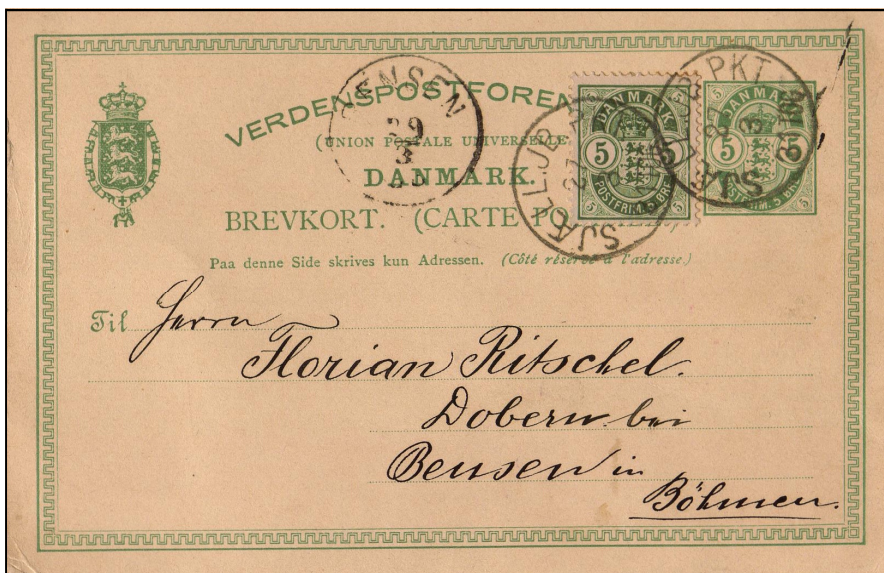 VERDENSPOSTFOREN
(UNION POSTALE UNIVERSELLE
DANMARK.
BREVKORT. (CARTE PO
Paa denne Side skrives kun Adressen. (Côté réservé à l'adresse.)
BENSEN
29
3
DANMARK
5 5
POSTFRIM. 5 ØRE
SJÆLL JB PKT
27
3
DANMARK
5 5
POSTFRIM. 5 ØRE
SJÆLL JB PKT
27
3
Til Herrn
Florian Ritschel.
Dobern bei
Bensen in
Böhmen.